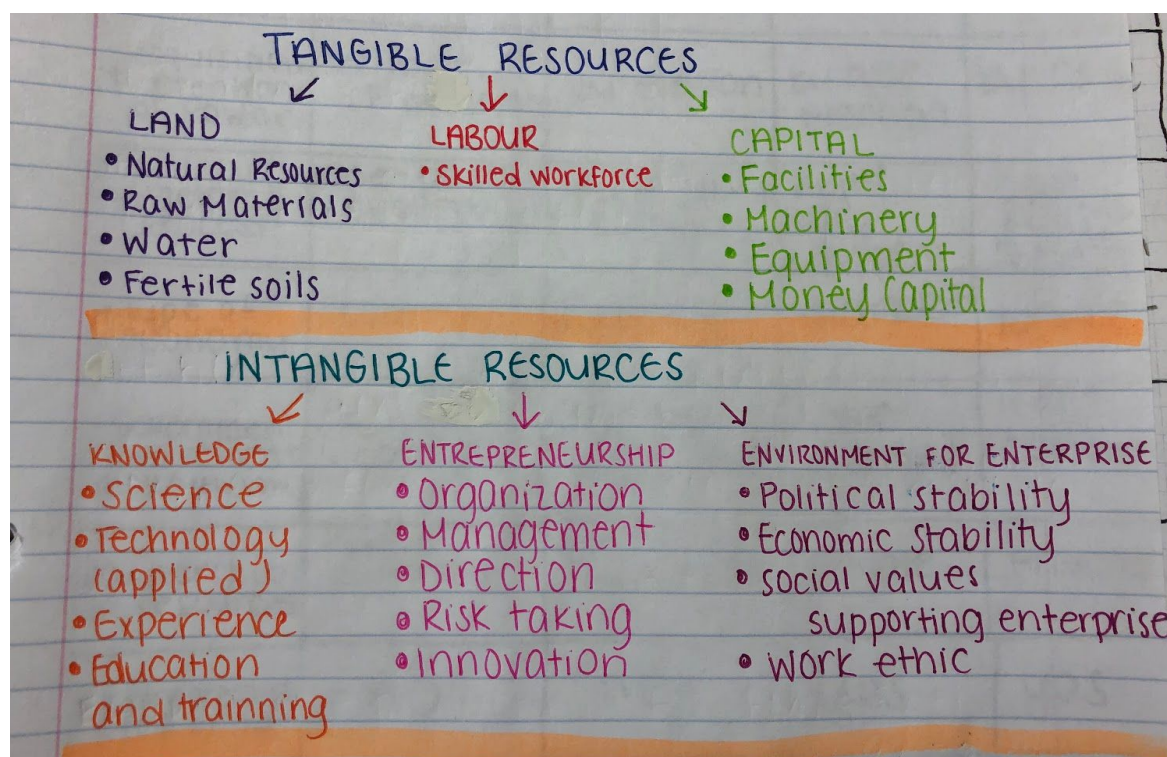 TANGIBLE RESOURCES
LAND
• Natural Resources
• Raw Materials
• Water
• Fertile soils
LABOUR
• Skilled workforce
CAPITAL
• Facilities
• Machinery
• Equipment
• Money Capital
INTANGIBLE RESOURCES
KNOWLEDGE
• Science
• Technology
(applied)
• Experience
• Education
and trainning
ENTREPRENEURSHIP
• Organization
• Management
• Direction
• Risk taking
• Innovation
ENVIRONMENT FOR ENTERPRISE
• Political stability
• Economic stability
• social values
supporting enterprise
• work ethic